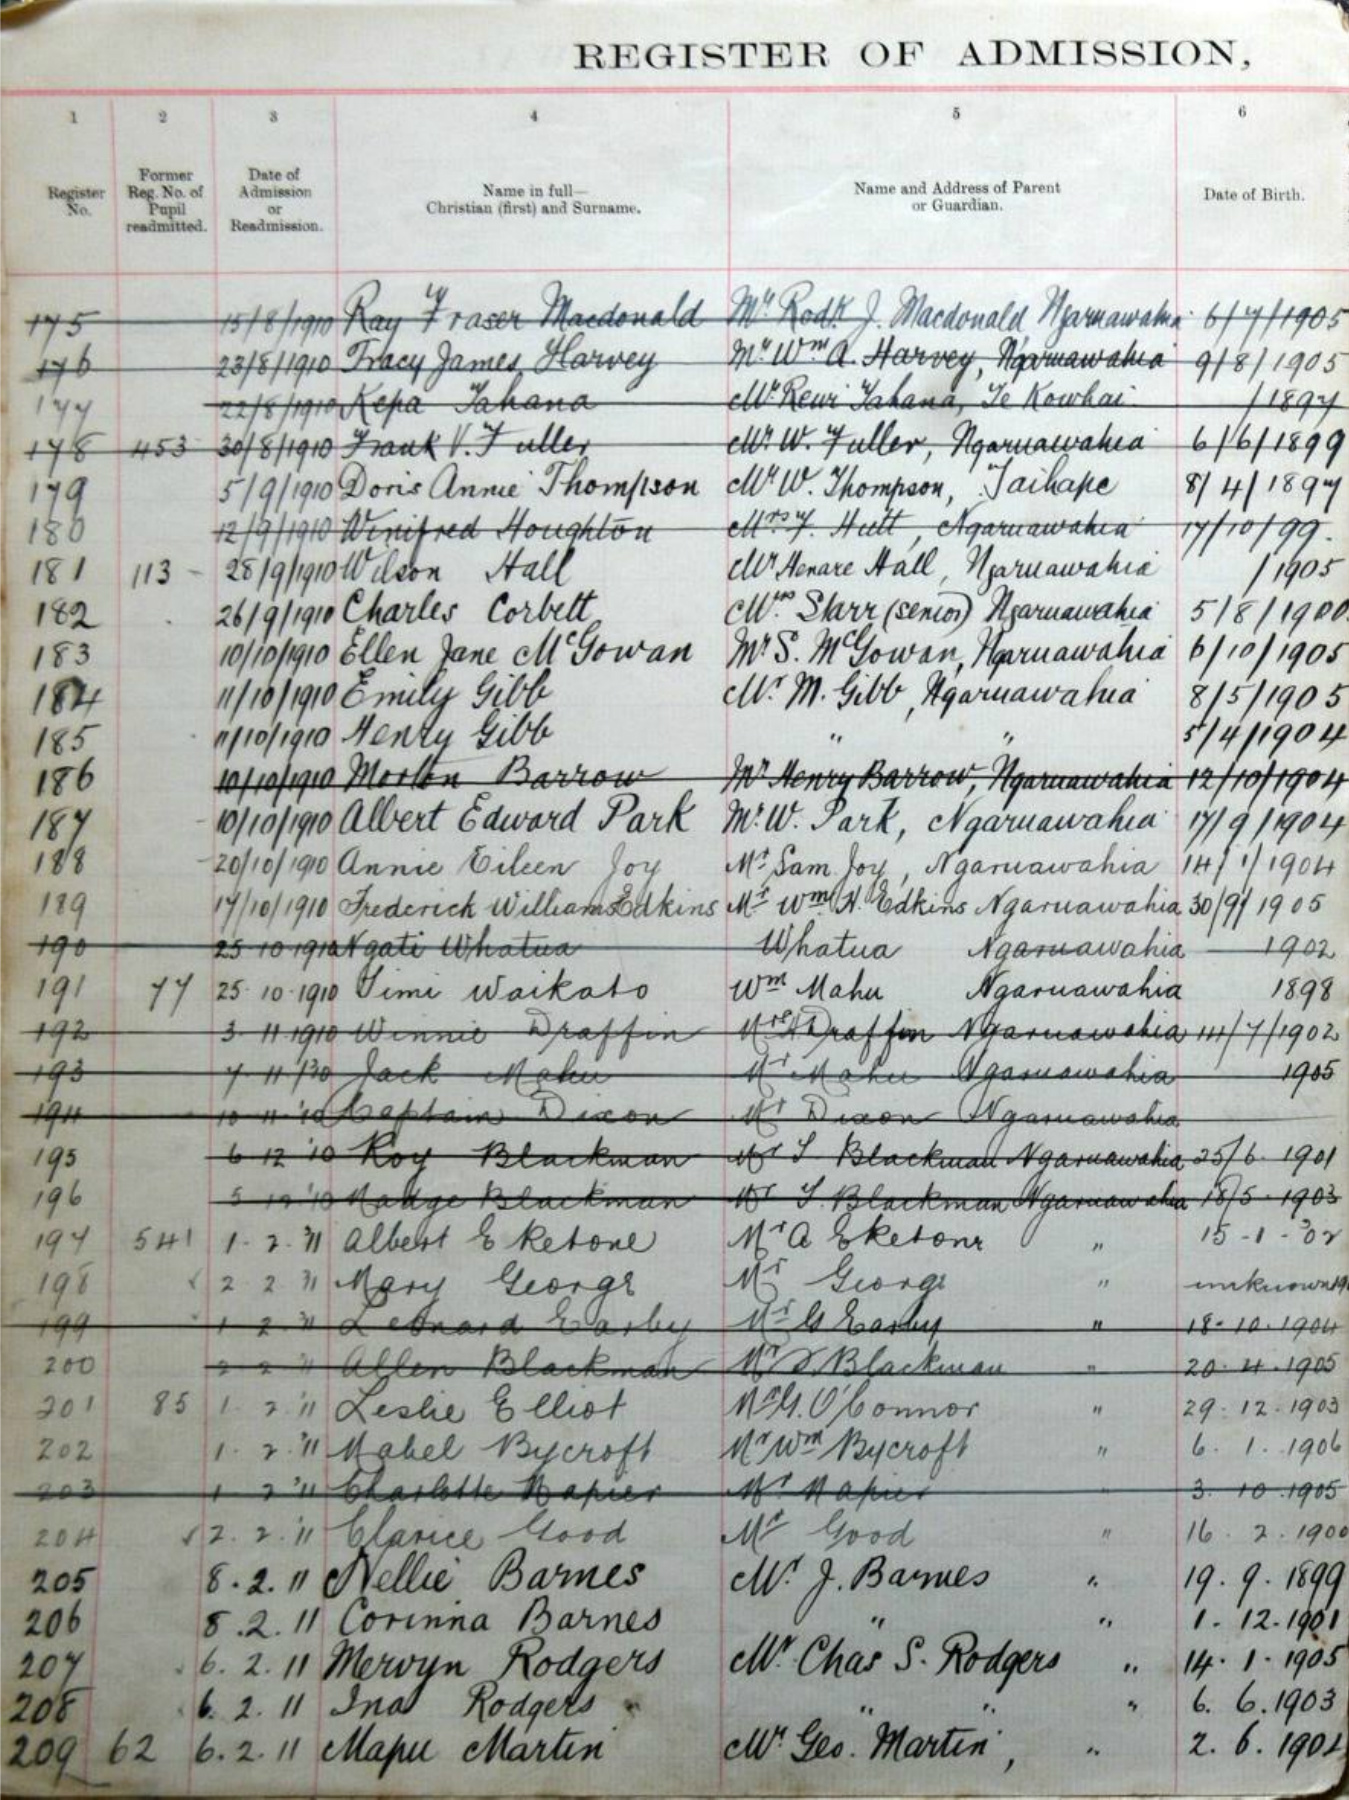 REGISTER OF ADMISSION,
1 2 3 4 5 6
Register No. Former Reg. No. of Pupil readmitted. Date of Admission or Readmission. Name in full— Christian (first) and Surname. Name and Address of Parent or Guardian. Date of Birth.
175 15/8/1910 Ray Fraser Macdonald Mr Rodk J. Macdonald Ngaruawahia 6/7/1905
176 23/8/1910 Tracy James Harvey Mr Wm A. Harvey, Ngaruawahia 9/8/1905
177 22/8/1910 Kepa Tahana Mr Rewi Tahana, Te Kowhai. /1897
178 453 30/8/1910 Frank V. Fuller Mr W. Fuller, Ngaruawahia 6/6/1899
179 5/9/1910 Doris Annie Thompson Mr W. Thompson, Taihape 8/4/1897
180 12/9/1910 Winifred Houghton Mrs F. Hutt, Ngaruawahia 17/10/99.
181 113 - 28/9/1910 Wilson Hall Mr Henare Hall, Ngaruawahia /1905
182 26/9/1910 Charles Corbett Mrs Starr (senior) Ngaruawahia 5/8/1900
183 10/10/1910 Ellen Jane McGowan Mr S. McGowan, Ngaruawahia 6/10/1905
184 11/10/1910 Emily Gibb Mr M. Gibb, Ngaruawahia 8/5/1905
185 11/10/1910 Henry Gibb " " 5/4/1904
186 10/10/1910 Morton Barrow Mr Henry Barrow, Ngaruawahia 12/10/1904
187 10/10/1910 Albert Edward Park Mr W. Park, Ngaruawahia 17/9/1904
188 20/10/1910 Annie Eileen Joy Mr Sam Joy, Ngaruawahia 14/1/1904
189 17/10/1910 Frederick William Edkins Mr Wm H. Edkins Ngaruawahia 30/9/1905
190 25 10 1910 Ngati Whatua Whatua Ngaruawahia 1902
191 77 25. 10. 1910 Timi Waikato Wm Mahu Ngaruawahia 1898
192 3. 11 1910 Winnie Draffin Draffin Ngaruawahia 14/7/1902
193 7 11 Jack Mahu Mr Mahu Ngaruawahia 1905
194 10 11 '10 Captain Dixon Mr Dixon Ngaruawahia
195 6 12 '10 Roy Blackman Mr S Blackman Ngaruawahia 25/6. 1901
196 5 12 '10 Madge Blackman Mr S. Blackman Ngaruawahia 18/5. 1903
197 541 1. 2. '11 Albert Eketone Mr A Eketone " 15-1-'02
198 2 2 '11 Mary George Mr George " unknown
199 1 2. '11 Leonard Earby Mr G Earby " 18. 10. 1904
200 2 2 '11 Allen Blackman Mr S Blackman " 20. 4. 1905
201 85 1. 2 '11 Leslie Elliot Mr G. O'Connor " 29. 12. 1903
202 1. 2. '11 Mabel Bycroft Mr Wm Bycroft " 6. 1. 1906
203 1 2 '11 Charlotte Napier Mr Napier " 3. 10. 1905
204 2. 2. '11 Clarice Good Mr Good " 16. 2. 1900
205 8. 2. 11 Nellie Barnes Mr J. Barnes " 19. 9. 1899
206 8. 2. 11 Corinna Barnes " " 1. 12. 1901
207 6. 2. 11 Mervyn Rodgers Mr Chas S. Rodgers " 14. 1. 1905
208 6. 2. 11 Ina Rodgers " " " 6. 6. 1903
209 62 6. 2. 11 Mapu Martin Mr Geo. Martin, " 2. 6.